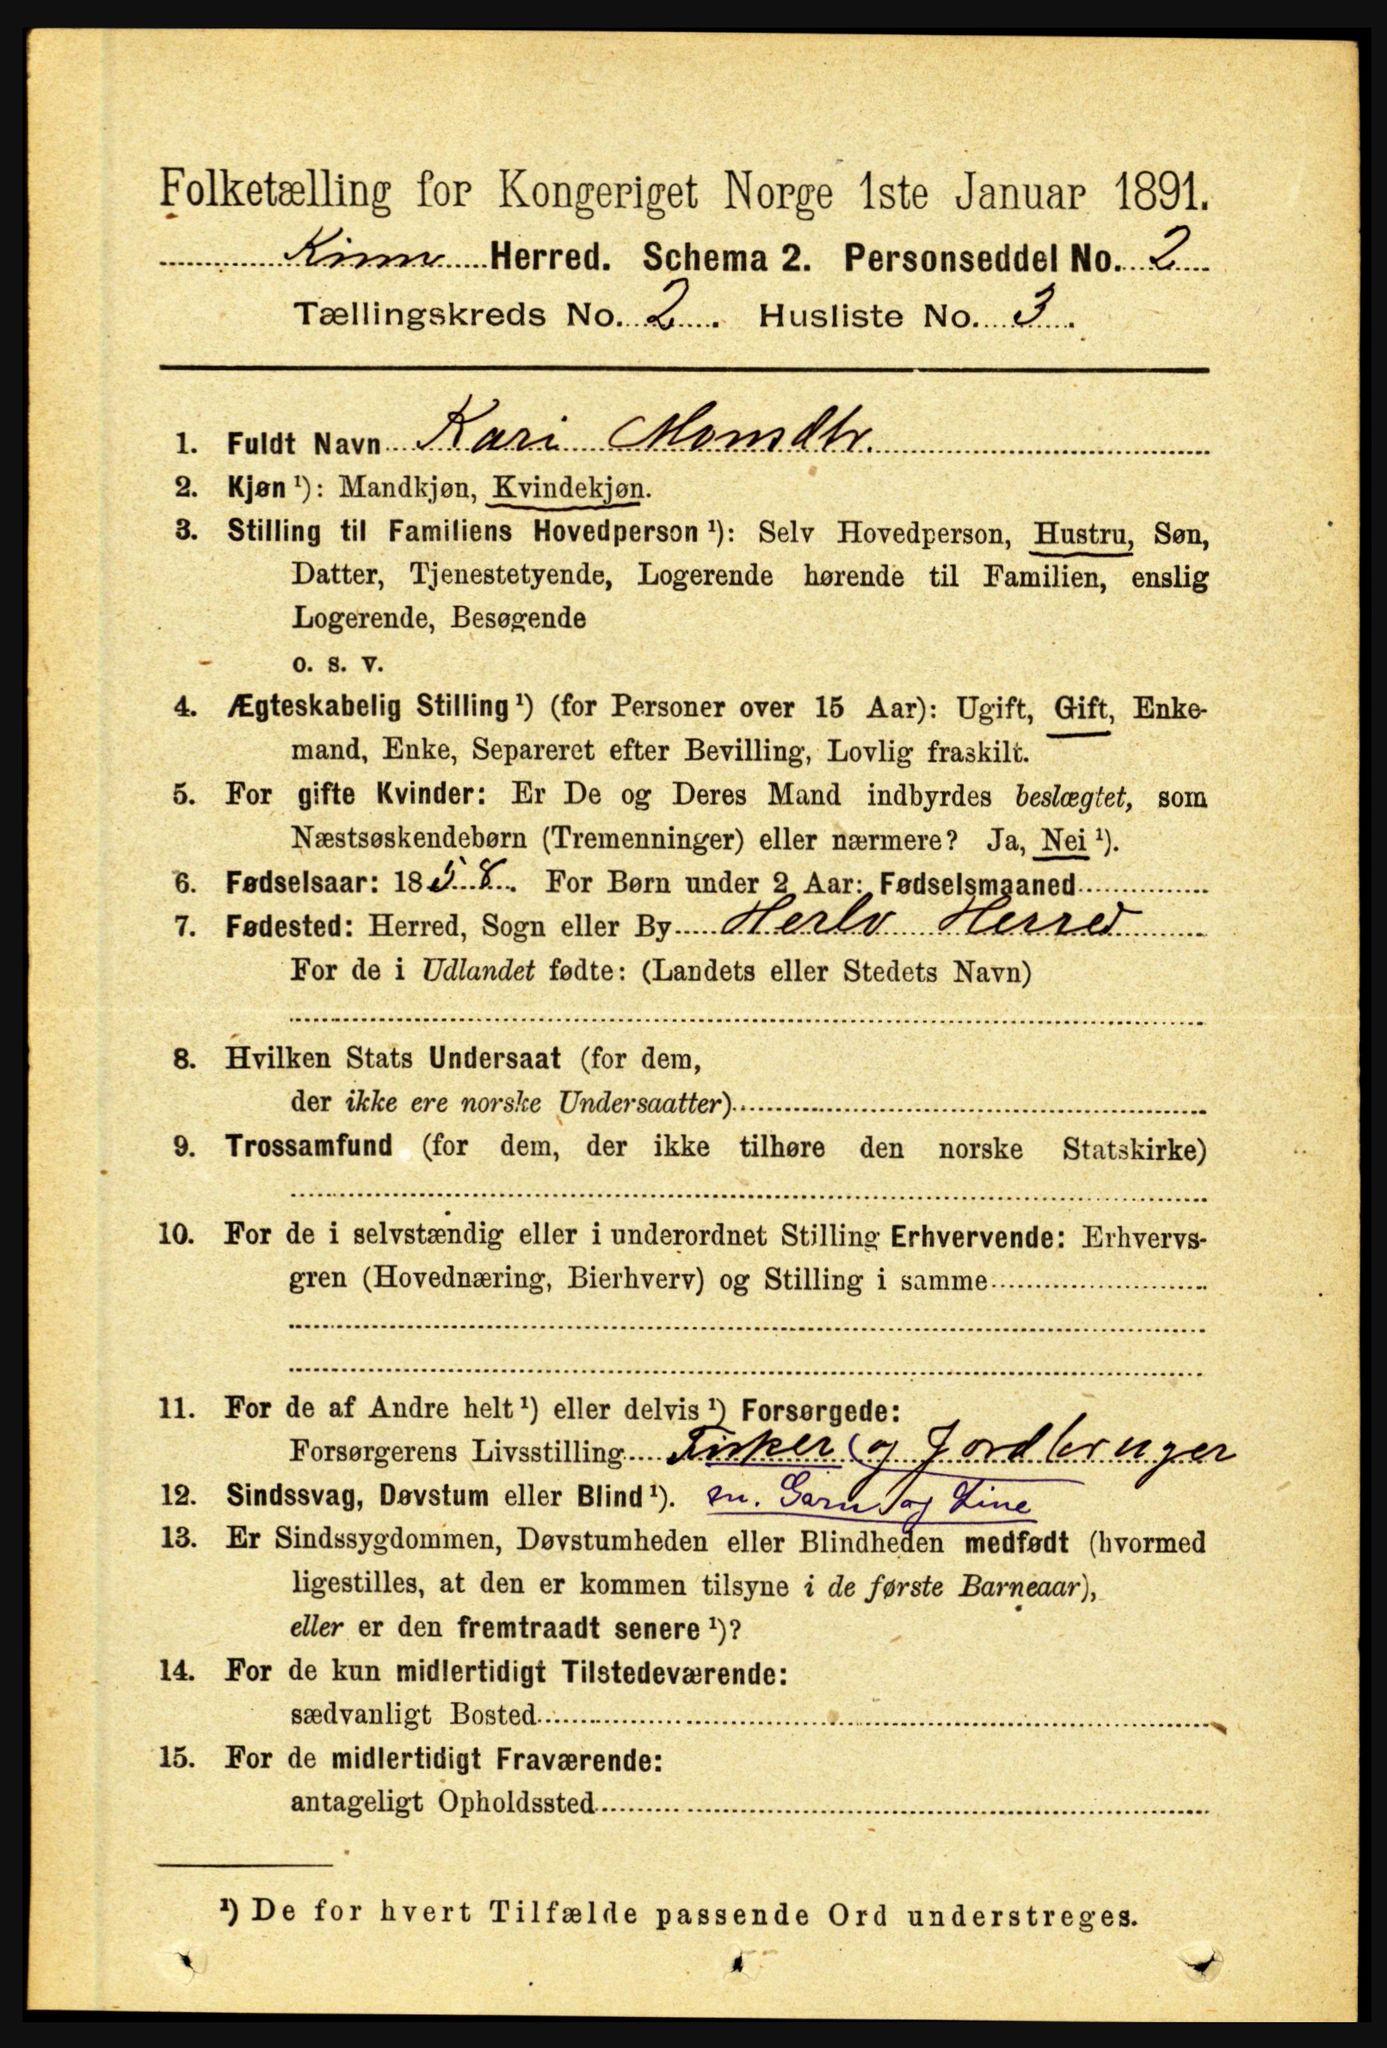 Folketælling for Kongeriget Norge 1ste Januar 1891.
Kinn Herred. Schema 2. Personseddel No. 2
Tællingskreds No. 2. Husliste No. 3.
1. Fuldt Navn Kari Monsdtr.
2. Kjøn ¹): Mandkjøn, Kvindekjøn.
3. Stilling til Familiens Hovedperson ¹): Selv Hovedperson, Hustru, Søn,
Datter, Tjenestetyende, Logerende hørende til Familien, enslig
Logerende, Besøgende
o. s. v.
4. Ægteskabelig Stilling ¹) (for Personer over 15 Aar): Ugift, Gift, Enke-
mand, Enke, Separeret efter Bevilling, Lovlig fraskilt.
5. For gifte Kvinder: Er De og Deres Mand indbyrdes beslægtet, som
Næstsøskendebørn (Tremenninger) eller nærmere? Ja, Nei ¹).
6. Fødselsaar: 1858. For Børn under 2 Aar: Fødselsmaaned
7. Fødested: Herred, Sogn eller By Herlø Herred
For de i Udlandet fødte: (Landets eller Stedets Navn)
8. Hvilken Stats Undersaat (for dem,
der ikke ere norske Undersaatter)
9. Trossamfund (for dem, der ikke tilhøre den norske Statskirke)
10. For de i selvstændig eller i underordnet Stilling Erhvervende: Erhvervs-
gren (Hovednæring, Bierhverv) og Stilling i samme
11. For de af Andre helt ¹) eller delvis ¹) Forsørgede:
Forsørgerens Livsstilling Fisker (og Jordbruger
12. Sindssvag, Døvstum eller Blind ¹). m. Garn og Line
13. Er Sindssygdommen, Døvstumheden eller Blindheden medfødt (hvormed
ligestilles, at den er kommen tilsyne i de første Barneaar),
eller er den fremtraadt senere ¹)?
14. For de kun midlertidigt Tilstedeværende:
sædvanligt Bosted
15. For de midlertidigt Fraværende:
antageligt Opholdssted
¹) De for hvert Tilfælde passende Ord understreges.